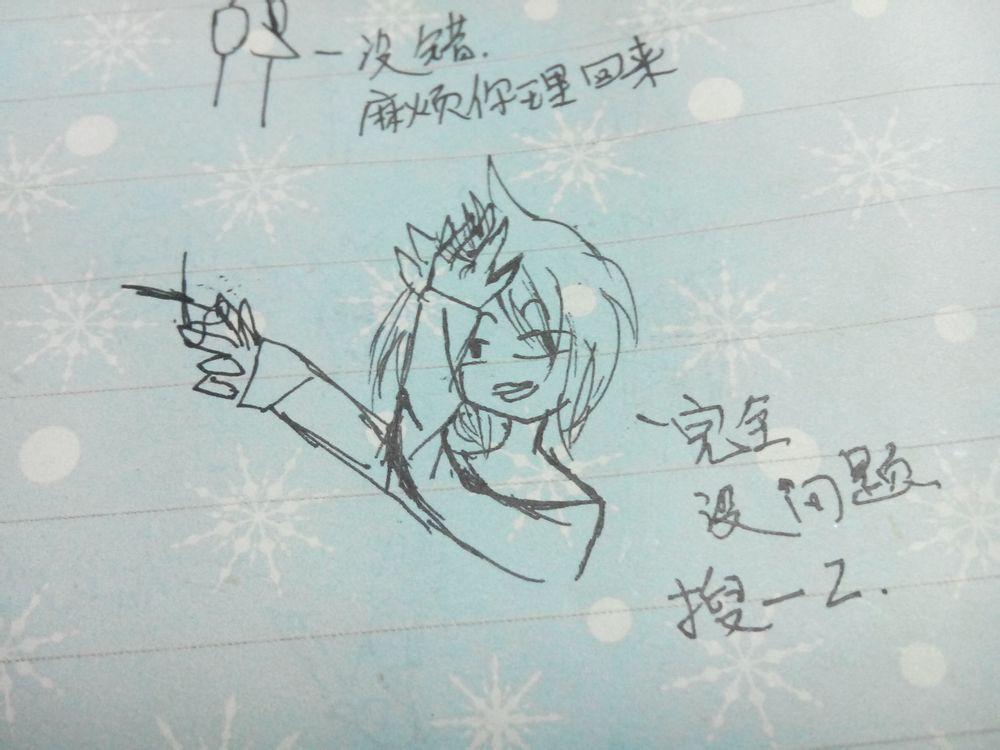 一没错.
麻烦你理回来
、完全
没问题
搜一乙.